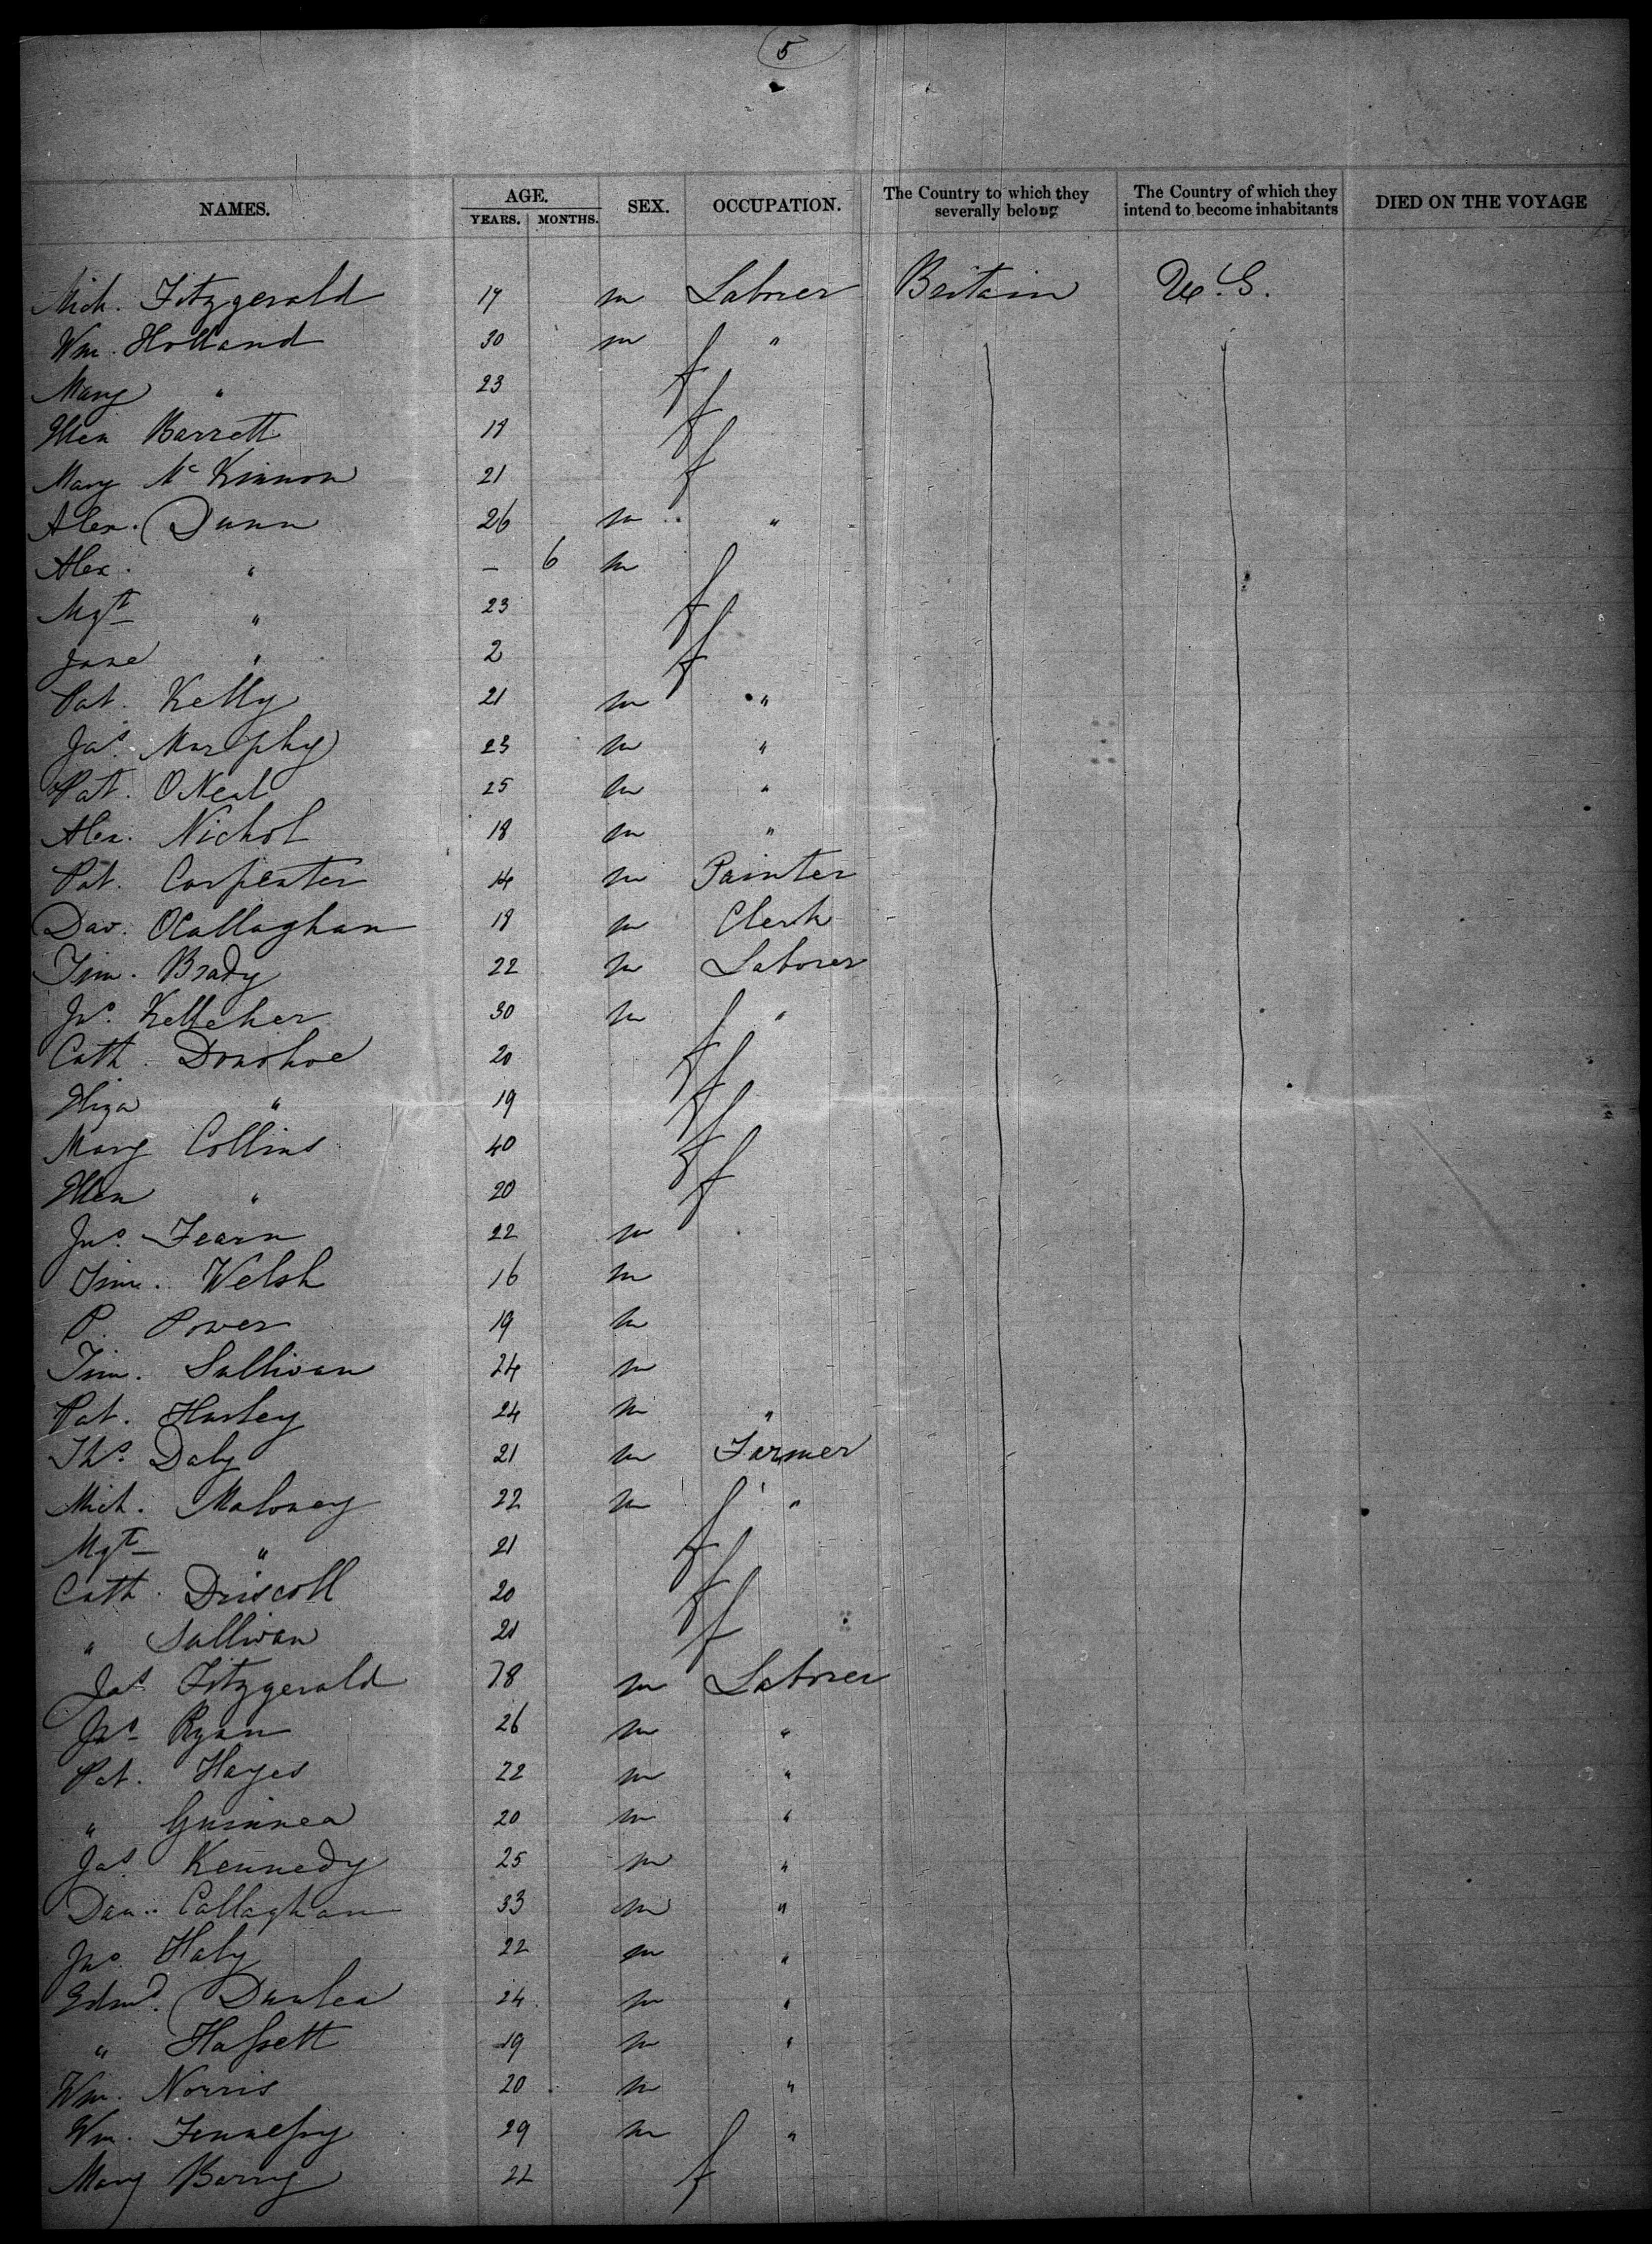 5
NAMES. AGE. YEARS. MONTHS. SEX. OCCUPATION. The Country to which they severally belong The Country of which they intend to become inhabitants DIED ON THE VOYAGE
Mich. Fitzgerald 19 m Laborer Britain U.S.
Wm. Holland 30 m "
Mary " 23 f
Ellen Barrett 19 f
Mary McKinnon 21 f
Alex. Dunn 26 m "
Alex. " – 6 m
Mgt " 23 f
Jane " 2 f
Pat. Kelly 21 m "
Jas. Murphy 23 m "
Pat. ONeal 25 m "
Alex. Nichol 18 m "
Pat. Carpenter 14 m Painter
Dav. OCallaghan 18 m Clerk
Tim. Brady 22 m Laborer
Jno. Kelleher 30 m "
Cath. Donohoe 20 f
Eliza " 19 f
Mary Collins 40 f
Ellen " 20 f
Jno. Fearn 22 m
Tim. Welsh 16 m
P. Power 19 m
Tim. Sullivan 24 m
Pat. Hurley 24 m "
Ths. Daly 21 m Farmer
Mich. Maloney 22 m "
Mgt " 21 f
Cath. Driscoll 20 f
" Sullivan 21 f
Jas. Fitzgerald 18 m Laborer
Jno. Ryan 26 m "
Pat. Hayes 22 m "
" Guinnea 20 m "
Jas. Kennedy 25 m "
Dan. Callaghan 33 m "
Jno. Haly 22 m "
Edmd. Dunlea 24 m "
" Hassett 19 m "
Wm. Norris 20 m "
Wm. Fennessy 29 m "
Mary Barry 22 f